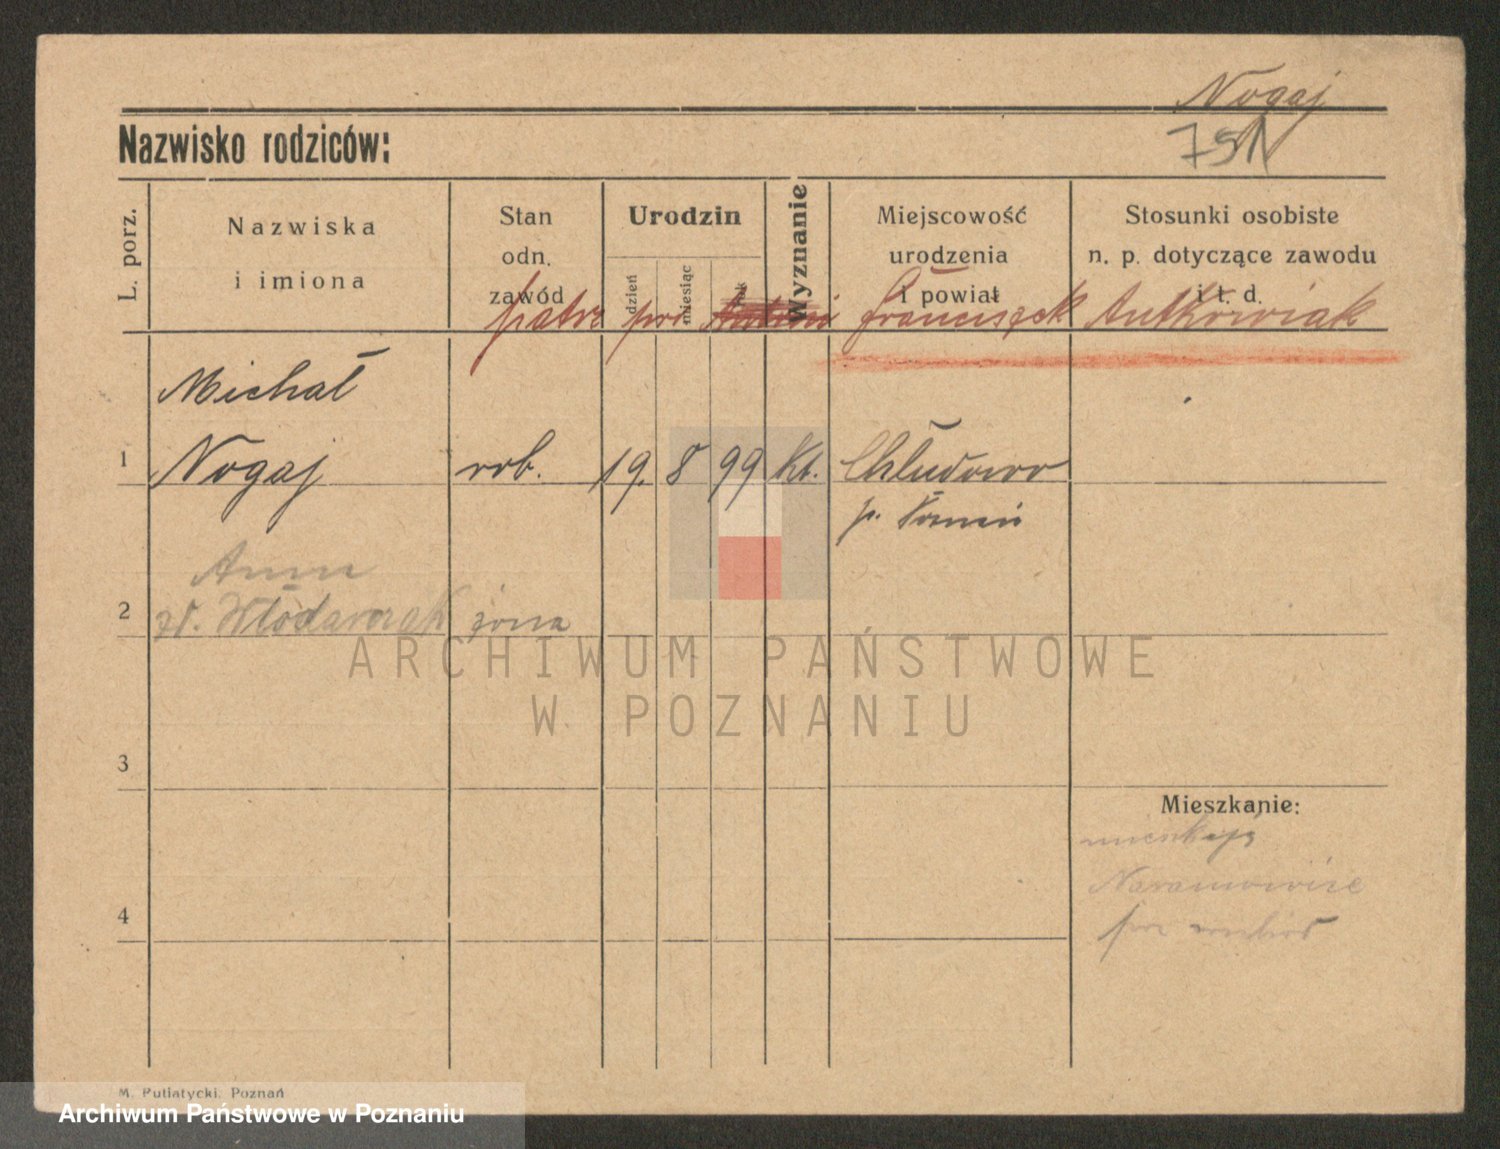 Nogaj
Nazwisko rodziców:
751
L. porz.
Nazwiska
i imiona
Stan
odn.
zawód
Urodzin
dzień
miesiąc
rok
Wyznanie
Miejscowość
urodzenia
i powiat
Stosunki osobiste
n. p. dotyczące zawodu
i t. d.
patrz przy Antoni Franciszek Antkowiak
Michał
1 Nogaj rob. 19. 8 99 kt. Chludowo
p.
Anna
2 zd. Włodarczak żona
ARCHIWUM PAŃSTWOWE
W POZNANIU
3
Mieszkanie:
Naramowice
4
M. Putiatycki, Poznań
Archiwum Państwowe w Poznaniu